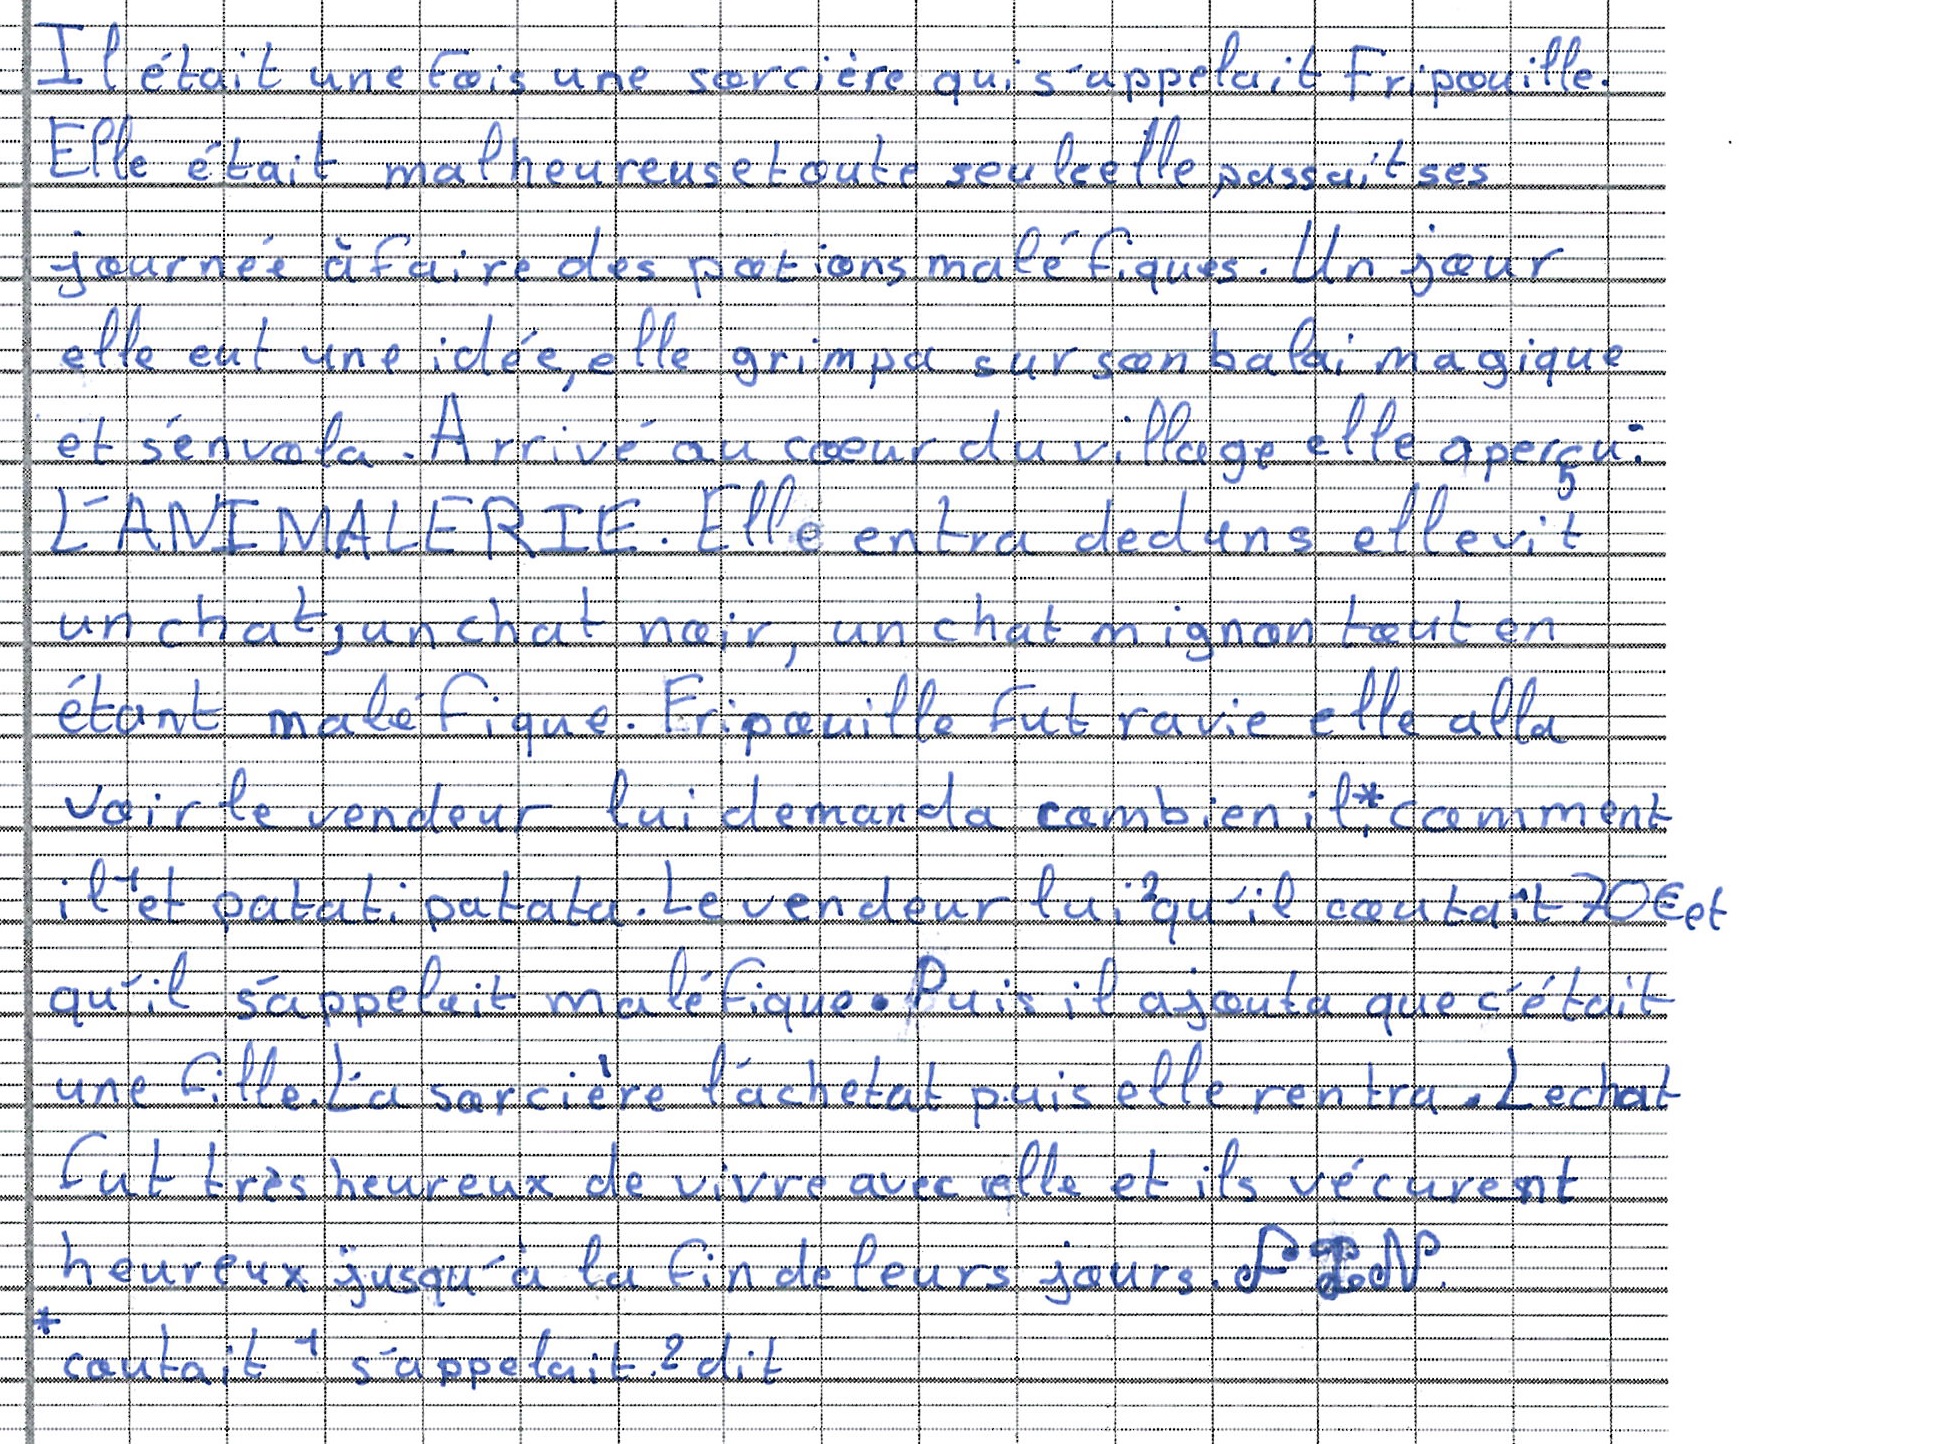 Il était une fois une sorcière qui s'appelait Fripouille.
Elle était malheureuse toute seule elle passait ses
journée à faire des potions maléfiques. Un jour
elle eut une idée, elle grimpa sur son balai magique
et s'envola. Arrivé au coeur du village elle aperçu:
L'ANIMALERIE. Elle entra dedans elle vit
un chat, un chat noir, un chat mignon tout en
étant maléfique. Fripouille fut ravie elle alla
voir le vendeur lui demanda combien il*, comment
il¹ et patati patata. Le vendeur lui² qu'il coutait 70€ et
qu'il s'appelait maléfique. Puis il ajouta que c'était
une fille. La sorcière l'achetat puis elle rentra. Le chat
fut très heureux de vivre avec elle et ils vécurent
heureux jusqu'à la fin de leurs jours. FIN.
* coutait ¹ s'appelait. ² dit